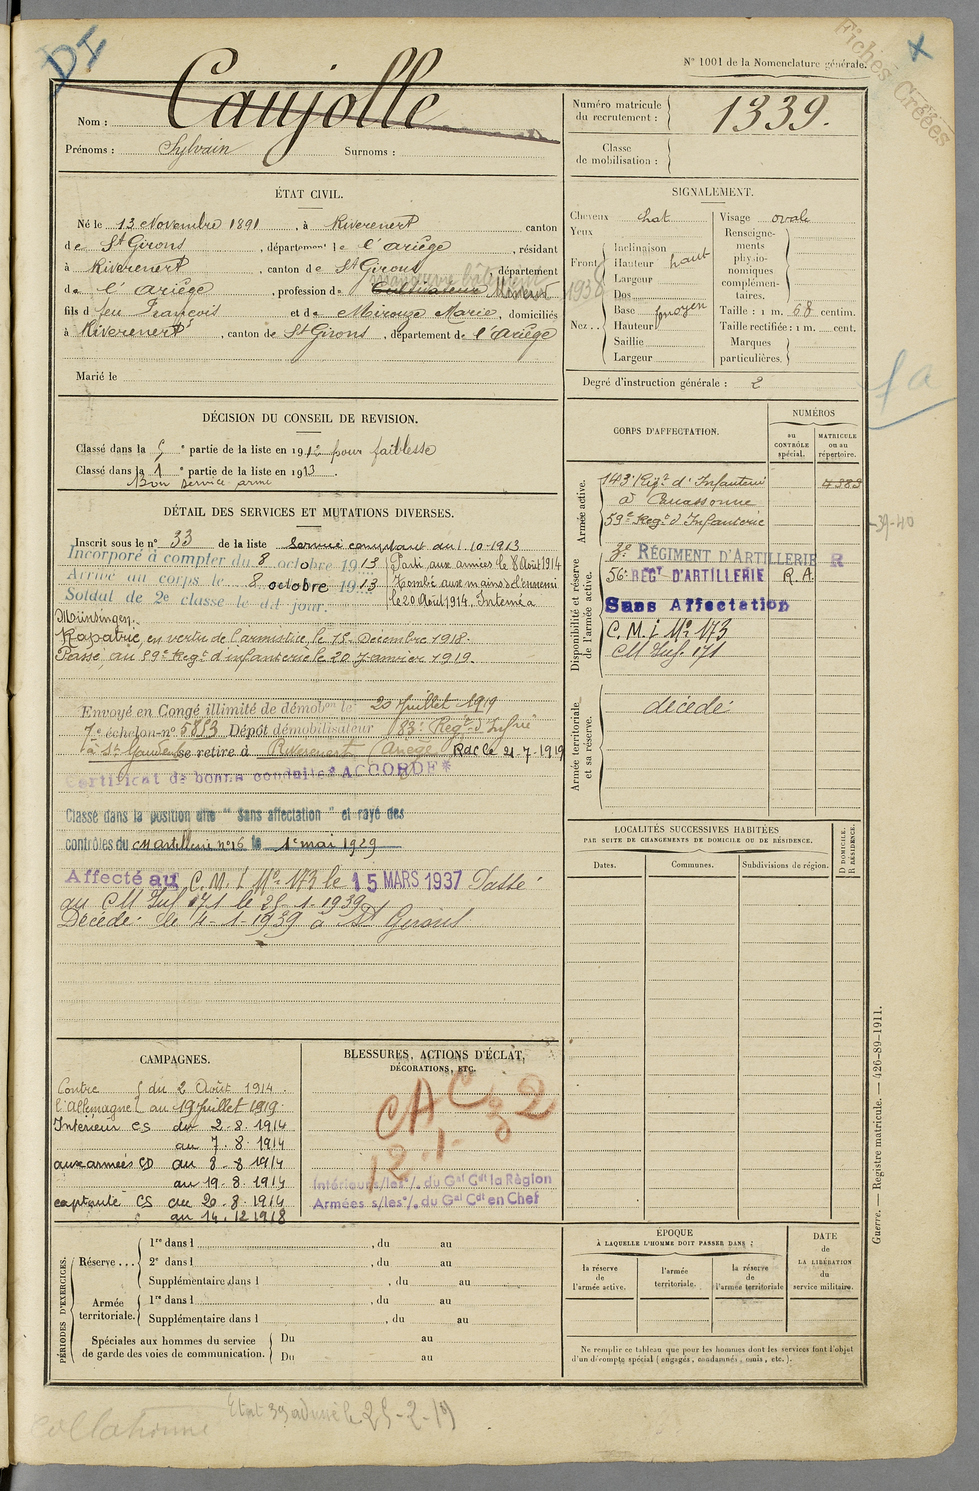 DI
Fiches Créées
N° 1001 de la Nomenclature générale.
Nom : Caujolle
Prénoms : Sylvain Surnoms :
Numéro matricule du recrutement : 1339.
Classe de mobilisation :
ÉTAT CIVIL.
Né le 13 Novembre 1891, à Riverenert canton
de St Girons, département de l'Ariège, résidant
à Riverenert, canton de St Girons, département
manœuvre bâtiment 1938
de l'Ariège, profession de Cultivateur Mineur
fils de feu François et de Mirouze Marie, domiciliés
à Riverenert, canton de St Girons, département de l'Ariège
Marié le
SIGNALEMENT.
Cheveux chat
Yeux
Front Inclinaison
Hauteur haut
Largeur
Nez.. Dos
Base moyen
Hauteur
Saillie
Largeur
Visage ovale
Renseignements physionomiques complémentaires.
Taille : 1 m. 68 centim.
Taille rectifiée : 1 m. cent.
Marques particulières.
Degré d'instruction générale : 2
1a
DÉCISION DU CONSEIL DE REVISION.
Classé dans la 5e partie de la liste en 1912 pour faiblesse
Classé dans la 1e partie de la liste en 1913.
Bon service armé
DÉTAIL DES SERVICES ET MUTATIONS DIVERSES.
Inscrit sous le n° 33 de la liste Service comptant du 1.10-1913
Incorporé à compter du 8 octobre 1913 Parti aux armées le 8 Août 1914
Arrivé au corps le 8 octobre 1913 Tombé aux mains de l'ennemi
Soldat de 2e classe le dit jour. le 20 Août 1914. Interné à
Münsingen.
Rapatrié, en vertu de l'armistice, le 15 Décembre 1918.
Passé au 59e Regt d'infanterie le 20 Janvier 1919.
Envoyé en Congé illimité de démobon le 20 Juillet 1919
7e échelon n° 5853 Dépôt démobilisateur 83e Regt d'Infrie
à St Gaudens se retire à Riverenert (Ariège) Rac le 21-7-1919
Certificat de bonne conduite "ACCORDÉ"
Classé dans la position dite "Sans affectation" et rayé des
contrôles du cm artillerie n°16 le 1er mai 1929
Affecté au C.M.I N° 173 le 15 MARS 1937 Passé
au CM Inf. 171 le 25-1-1939
Décédé le 4-1-1939 à St Girons
CORPS D'AFFECTATION.
NUMÉROS
au CONTRÔLE spécial.
MATRICULE ou au répertoire.
Armée active.
143e Régt d'Infanterie 4389
à Carcassonne
59e Regt d'Infanterie
39-40
Disponibilité et réserve de l'armée active.
3e RÉGIMENT D'ARTILLERIE R
56e REGT D'ARTILLERIE R.A
Sans Affectation
C.M.I N° 173
CM Inf. 171
Armée territoriale et sa réserve.
décédé
LOCALITÉS SUCCESSIVES HABITÉES
PAR SUITE DE CHANGEMENTS DE DOMICILE OU DE RÉSIDENCE.
Dates. Communes. Subdivisions de région. D DOMICILE. R RÉSIDENCE.
CAMPAGNES.
Contre l'Allemagne du 2 Août 1914.
au 19 Juillet 1919.
Intérieur CS du 2-8-1914
au 7-8-1914
aux armées CD du 8-8-1914
au 19-8-1914
captivité CS du 20-8-1914
au 14.12.1918
BLESSURES, ACTIONS D'ÉCLAT,
DÉCORATIONS, ETC.
Intérieur s/les °/. du Gal Cdt la Région
Armées s/les °/. du Gal Cdt en Chef
PÉRIODES D'EXERCICES.
Réserve ... 1re dans l , du au
2e dans l , du au
Supplémentaire dans l , du au
Armée territoriale. 1re dans l , du au
Supplémentaire dans l , du au
Spéciales aux hommes du service de garde des voies de communication. Du au
Du au
ÉPOQUE
À LAQUELLE L'HOMME DOIT PASSER DANS :
la réserve de l'armée active.
l'armée territoriale.
la réserve de l'armée territoriale
DATE de LA LIBÉRATION du service militaire.
Ne remplir ce tableau que pour les hommes dont les services font l'objet
d'un décompte spécial (engagés, condamnés, omis, etc.).
Guerre. — Registre matricule. — 426-89-1911.
collationné